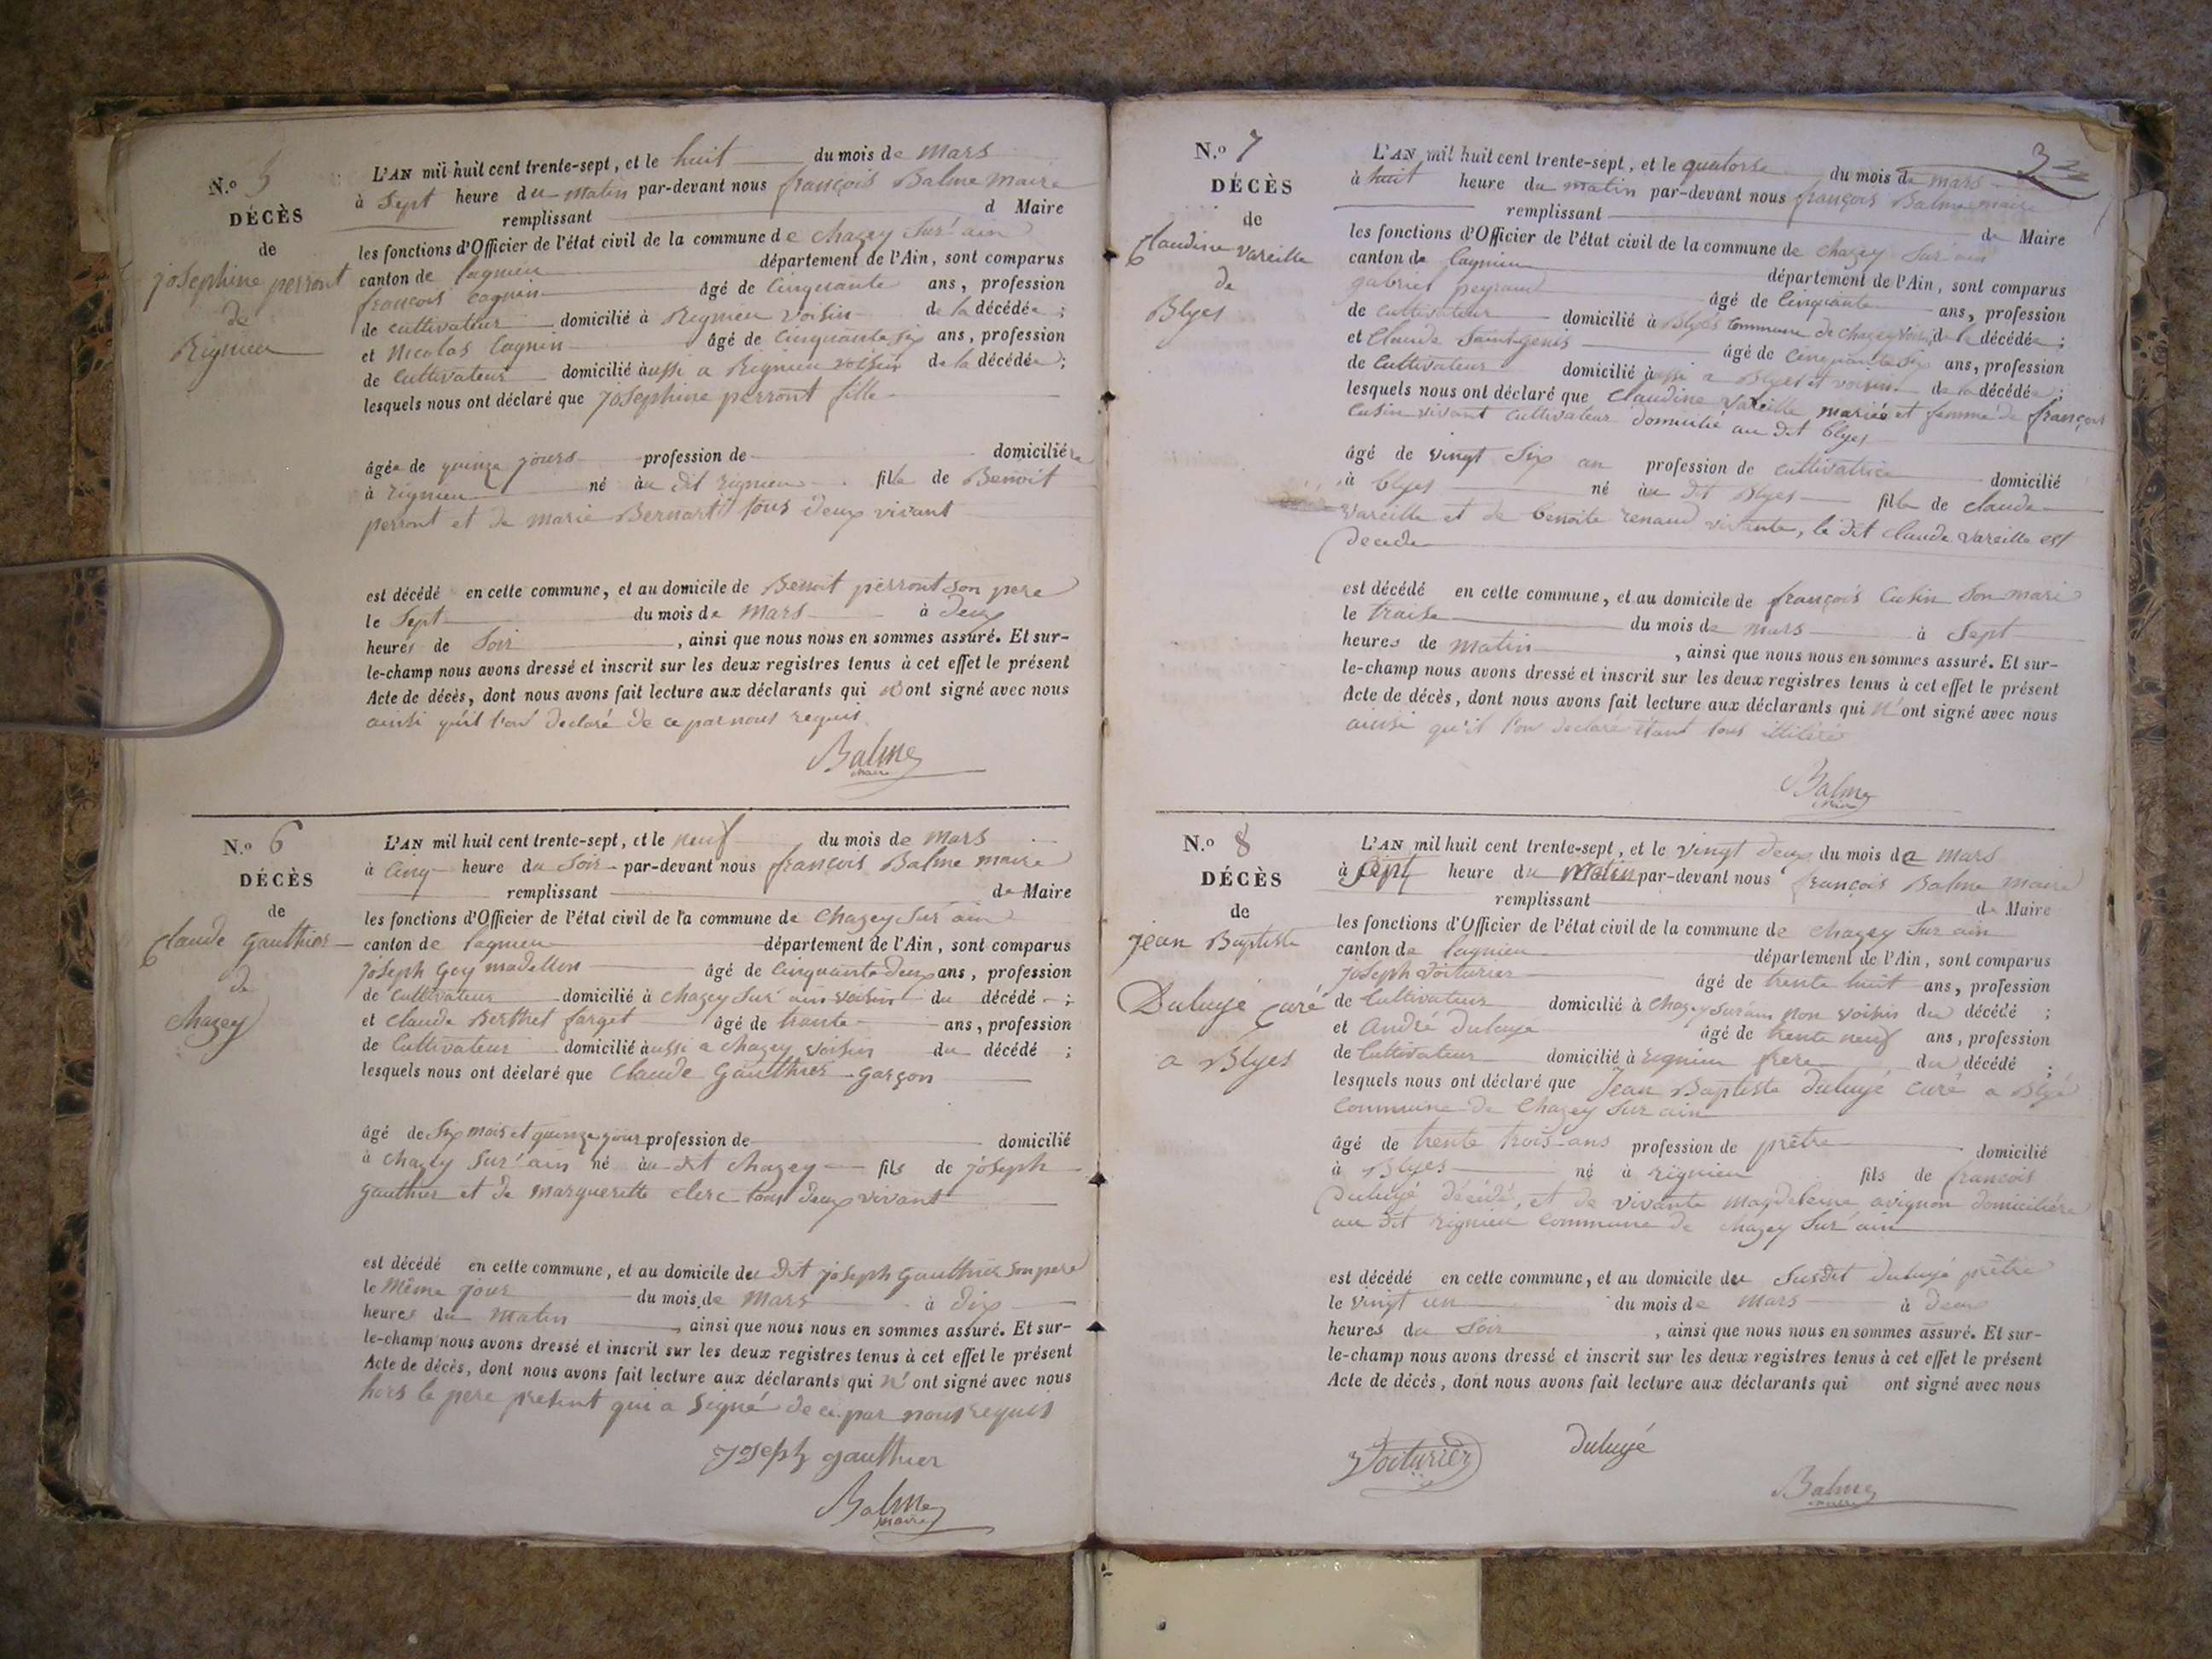 N.º 5
DÉCÈS
de
josephine perront
de
Rignieu
L'AN mil huit cent trente-sept, et le huit du mois de mars
à sept heure du matin par-devant nous françois Balme maire
remplissant d Maire
les fonctions d'Officier de l'état civil de la commune de chazey sur ain
canton de lagnieu département de l'Ain, sont comparus
françois cagnin âgé de cinquante ans, profession
de cultivateur domicilié à Rignieu voisin de la décédée ;
et Nicolas cagnin âgé de cinquante six ans, profession
de cultivateur domicilié aussi a Rignieu voisin de la décédée ;
lesquels nous ont déclaré que josephine perront fille
âgée de quinze jours profession de domiciliée
à rignieu né au dit rignieu fille de Benoit
perront et de marie Bernard tous deux vivant
est décédé en cette commune, et au domicile de Benoit perront son pere
le sept du mois de mars à deux
heures de soir , ainsi que nous nous en sommes assuré. Et sur-
le-champ nous avons dressé et inscrit sur les deux registres tenus à cet effet le présent
Acte de décès, dont nous avons fait lecture aux déclarants qui n'ont signé avec nous
ainsi qu'il l'on declaré de ce par nous requis
Balme
maire
N.º 6
DÉCÈS
de
Claude Gauthier
de
chazey
L'AN mil huit cent trente-sept, et le neuf du mois de mars
à cinq heure du soir par-devant nous françois Balme maire
remplissant de Maire
les fonctions d'Officier de l'état civil de la commune de chazey sur ain
canton de lagnieu département de l'Ain, sont comparus
joseph Gey madellon âgé de cinquante deux ans, profession
de cultivateur domicilié à chazey sur ain voisin du décédé ;
et claude Berthet farget âgé de trante ans, profession
de cultivateur domicilié aussi a chazey voisin du décédé ;
lesquels nous ont déclaré que claude Gauthier garçon
âgé de six mois et quinze jour profession de domicilié
à chazey sur ain né au dit chazey fils de joseph
gauthier et de marguerette clerc tous deux vivant
est décédé en cette commune, et au domicile du dit joseph gauthier son pere
le même jour du mois de mars à dix
heures du matin , ainsi que nous nous en sommes assuré. Et sur-
le-champ nous avons dressé et inscrit sur les deux registres tenus à cet effet le présent
Acte de décès, dont nous avons fait lecture aux déclarants qui n'ont signé avec nous
hors le pere présent qui a signé de ce par nous requis
joseph gauthier
Balme
maire
N.º 7
DÉCÈS
de
Claudine vareille
de
Blyes
L'AN mil huit cent trente-sept, et le quatorse du mois de mars
à huit heure du matin par-devant nous françois Balme maire
remplissant de Maire
les fonctions d'Officier de l'état civil de la commune de chazey sur ain
canton de lagnieu département de l'Ain, sont comparus
gabriel peyraud âgé de cinquante ans, profession
de cultivateur domicilié à Blyes commune de chazey voisin de la décédée ;
et claude Saintgenis âgé de cinquante six ans, profession
de cultivateur domicilié aussi a Blyes et voisin de la décédée ;
lesquels nous ont déclaré que claudine vareille mariée et femme de françois
cusin vivant cultivateur domicilié au dit blyes
âgé de vingt six an profession de cultivatrice domicilié
à blyes né au dit Blyes fille de claude
vareille et de benoite renaud vivante, le dit claude vareille est
décédé
est décédé en cette commune, et au domicile de françois cusin son mari
le traise du mois de mars à sept
heures de matin , ainsi que nous nous en sommes assuré. Et sur-
le-champ nous avons dressé et inscrit sur les deux registres tenus à cet effet le présent
Acte de décès, dont nous avons fait lecture aux déclarants qui n'ont signé avec nous
ainsi qu'il l'on declaré étant tous illiteré
Balme
maire
N.º 8
DÉCÈS
de
jean Baptiste
Duluyé curé
a Blyes
L'AN mil huit cent trente-sept, et le vingt deux du mois de mars
à sept heure du matin par-devant nous françois Balme maire
remplissant de Maire
les fonctions d'Officier de l'état civil de la commune de chazey sur ain
canton de lagnieu département de l'Ain, sont comparus
joseph voiturier âgé de trente huit ans, profession
de cultivateur domicilié à chazey sur ain non voisin du décédé ;
et andré duluyé âgé de trente neuf ans, profession
de cultivateur domicilié à rignieu frere du décédé ;
lesquels nous ont déclaré que Jean Baptiste duluyé curé a Blyé
commune de chazey sur ain
âgé de trente trois ans profession de prêtre domicilié
à Blyes né à rignieu fils de françois
duluyé décédé, et de vivante magdeleine avignon domiciliée
au dit rignieu commune de chazey sur ain
est décédé en cette commune, et au domicile du susdit duluyé prêtre
le vingt un du mois de mars à deux
heures du soir , ainsi que nous nous en sommes assuré. Et sur-
le-champ nous avons dressé et inscrit sur les deux registres tenus à cet effet le présent
Acte de décès, dont nous avons fait lecture aux déclarants qui ont signé avec nous
Voiturier duluyé
Balme
maire